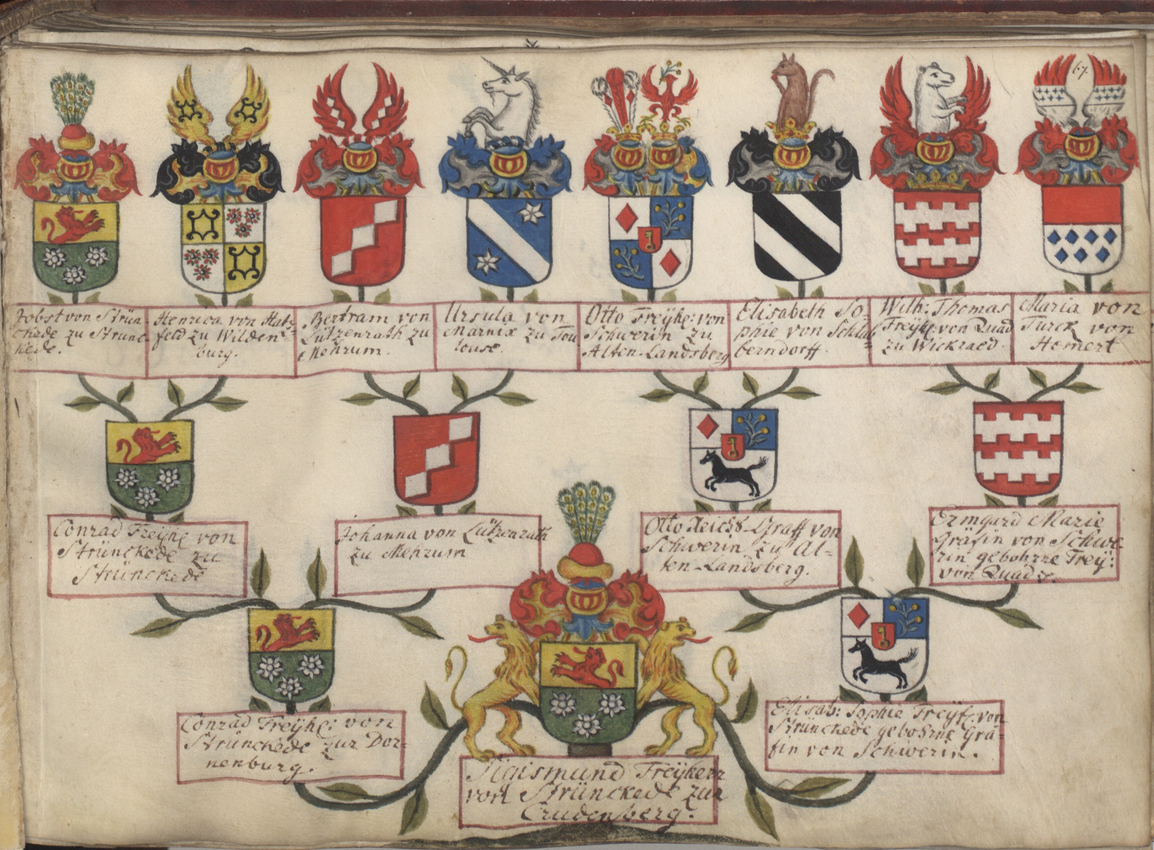 67.
Jobst von Strün
ckede zu Strünc
kede.
Henrica von Hatz-
feld zu Wilden
burg.
Bertram von
Lützenrath zu
Mehrum.
Ursula von
Marnix zu Tou
louse.
Otto Freyhe: von
Schwerin zu
Alten-Landsberg
Elisabeth So-
phie von Schla
berndorff
Wilh: Thomas
Freyh: von Quad
zu Wickraed.
Maria von
Turck von
Hemert
Conrad Freyhe von
Strünckede zu
Strünckede
Johanna von Lützenrath
zu Mehrum
Otto Reichs-Graff von
Schwerin zu Al-
ten-Landsberg.
Ermgard Marie
Gräfin von Schwe-
rin gebohrne Frey:
von Quad
Conrad Freyhe: von
Strünckede zur Dor-
nenburg.
Elisab: Sophie Freyf: von
Strünckede gebohrne Grä-
fin von Schwerin.
Sigismund Freyherr
von Strünckede zur
Crudenberg.